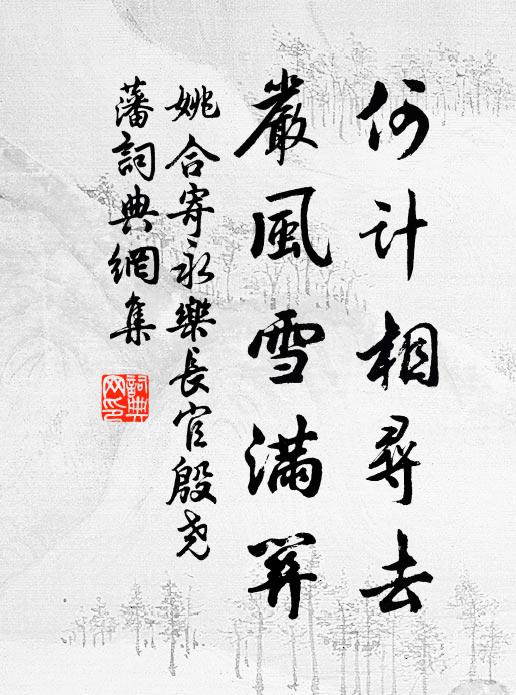 何计相尋去
嚴風雪滿關
姚合寄永樂長官殷尧
藩詞典網集
詞典
网印